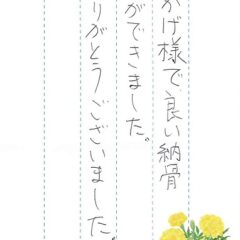 かげ様で良い納骨
ができました。
りがとうございました。